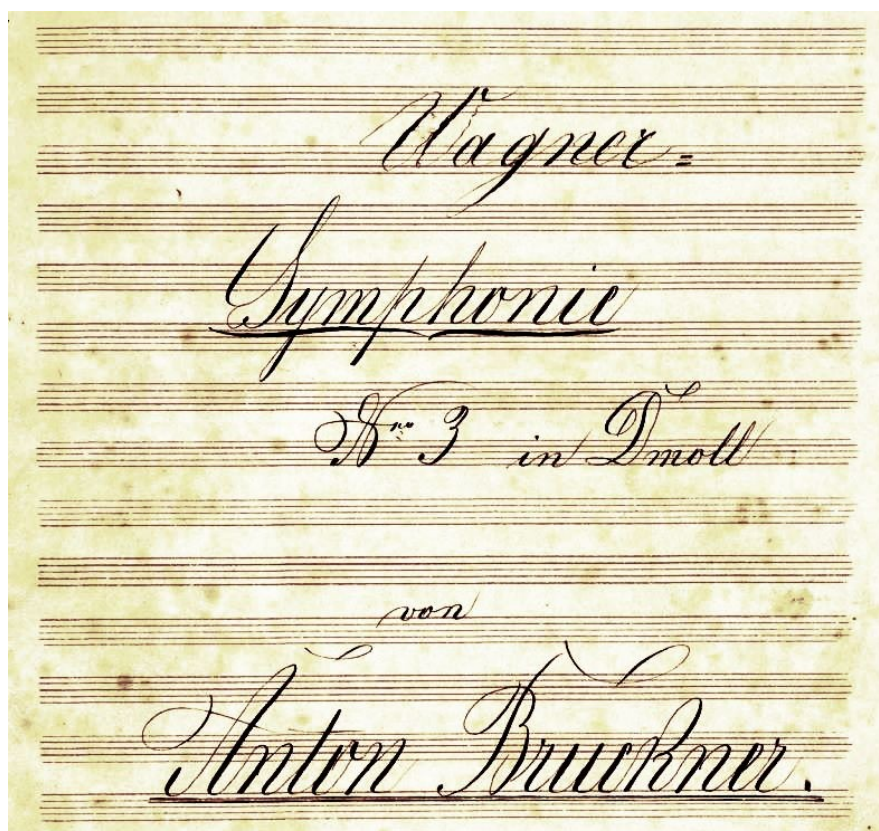 Wagner=
Symphonie
Nro 3 in Dmoll
von
Anton Bruckner.